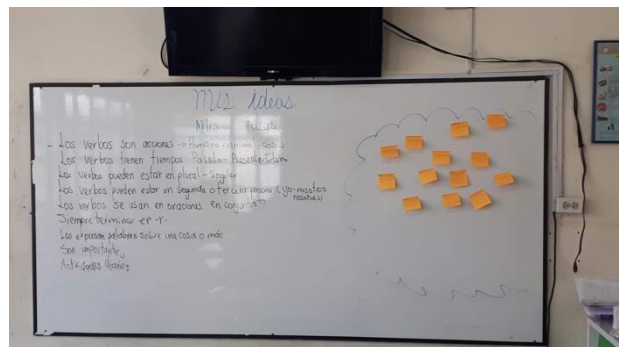 Mis ideas
Mis ideas
- Los verbos son acciones → Humano - animal - cosas
Los verbos tienen tiempos Pasado - Presente - Futuro
Los verbos pueden estar en plural - Singular
Los verbos pueden estar en segunda o tercera persona (yo - nosotros
nosotras)
Los verbos se usan en oraciones en conjuntos??
Siempre terminar en -r-
Los expresan palabras sobre una cosa o más
Son importantes
Actividades diarias